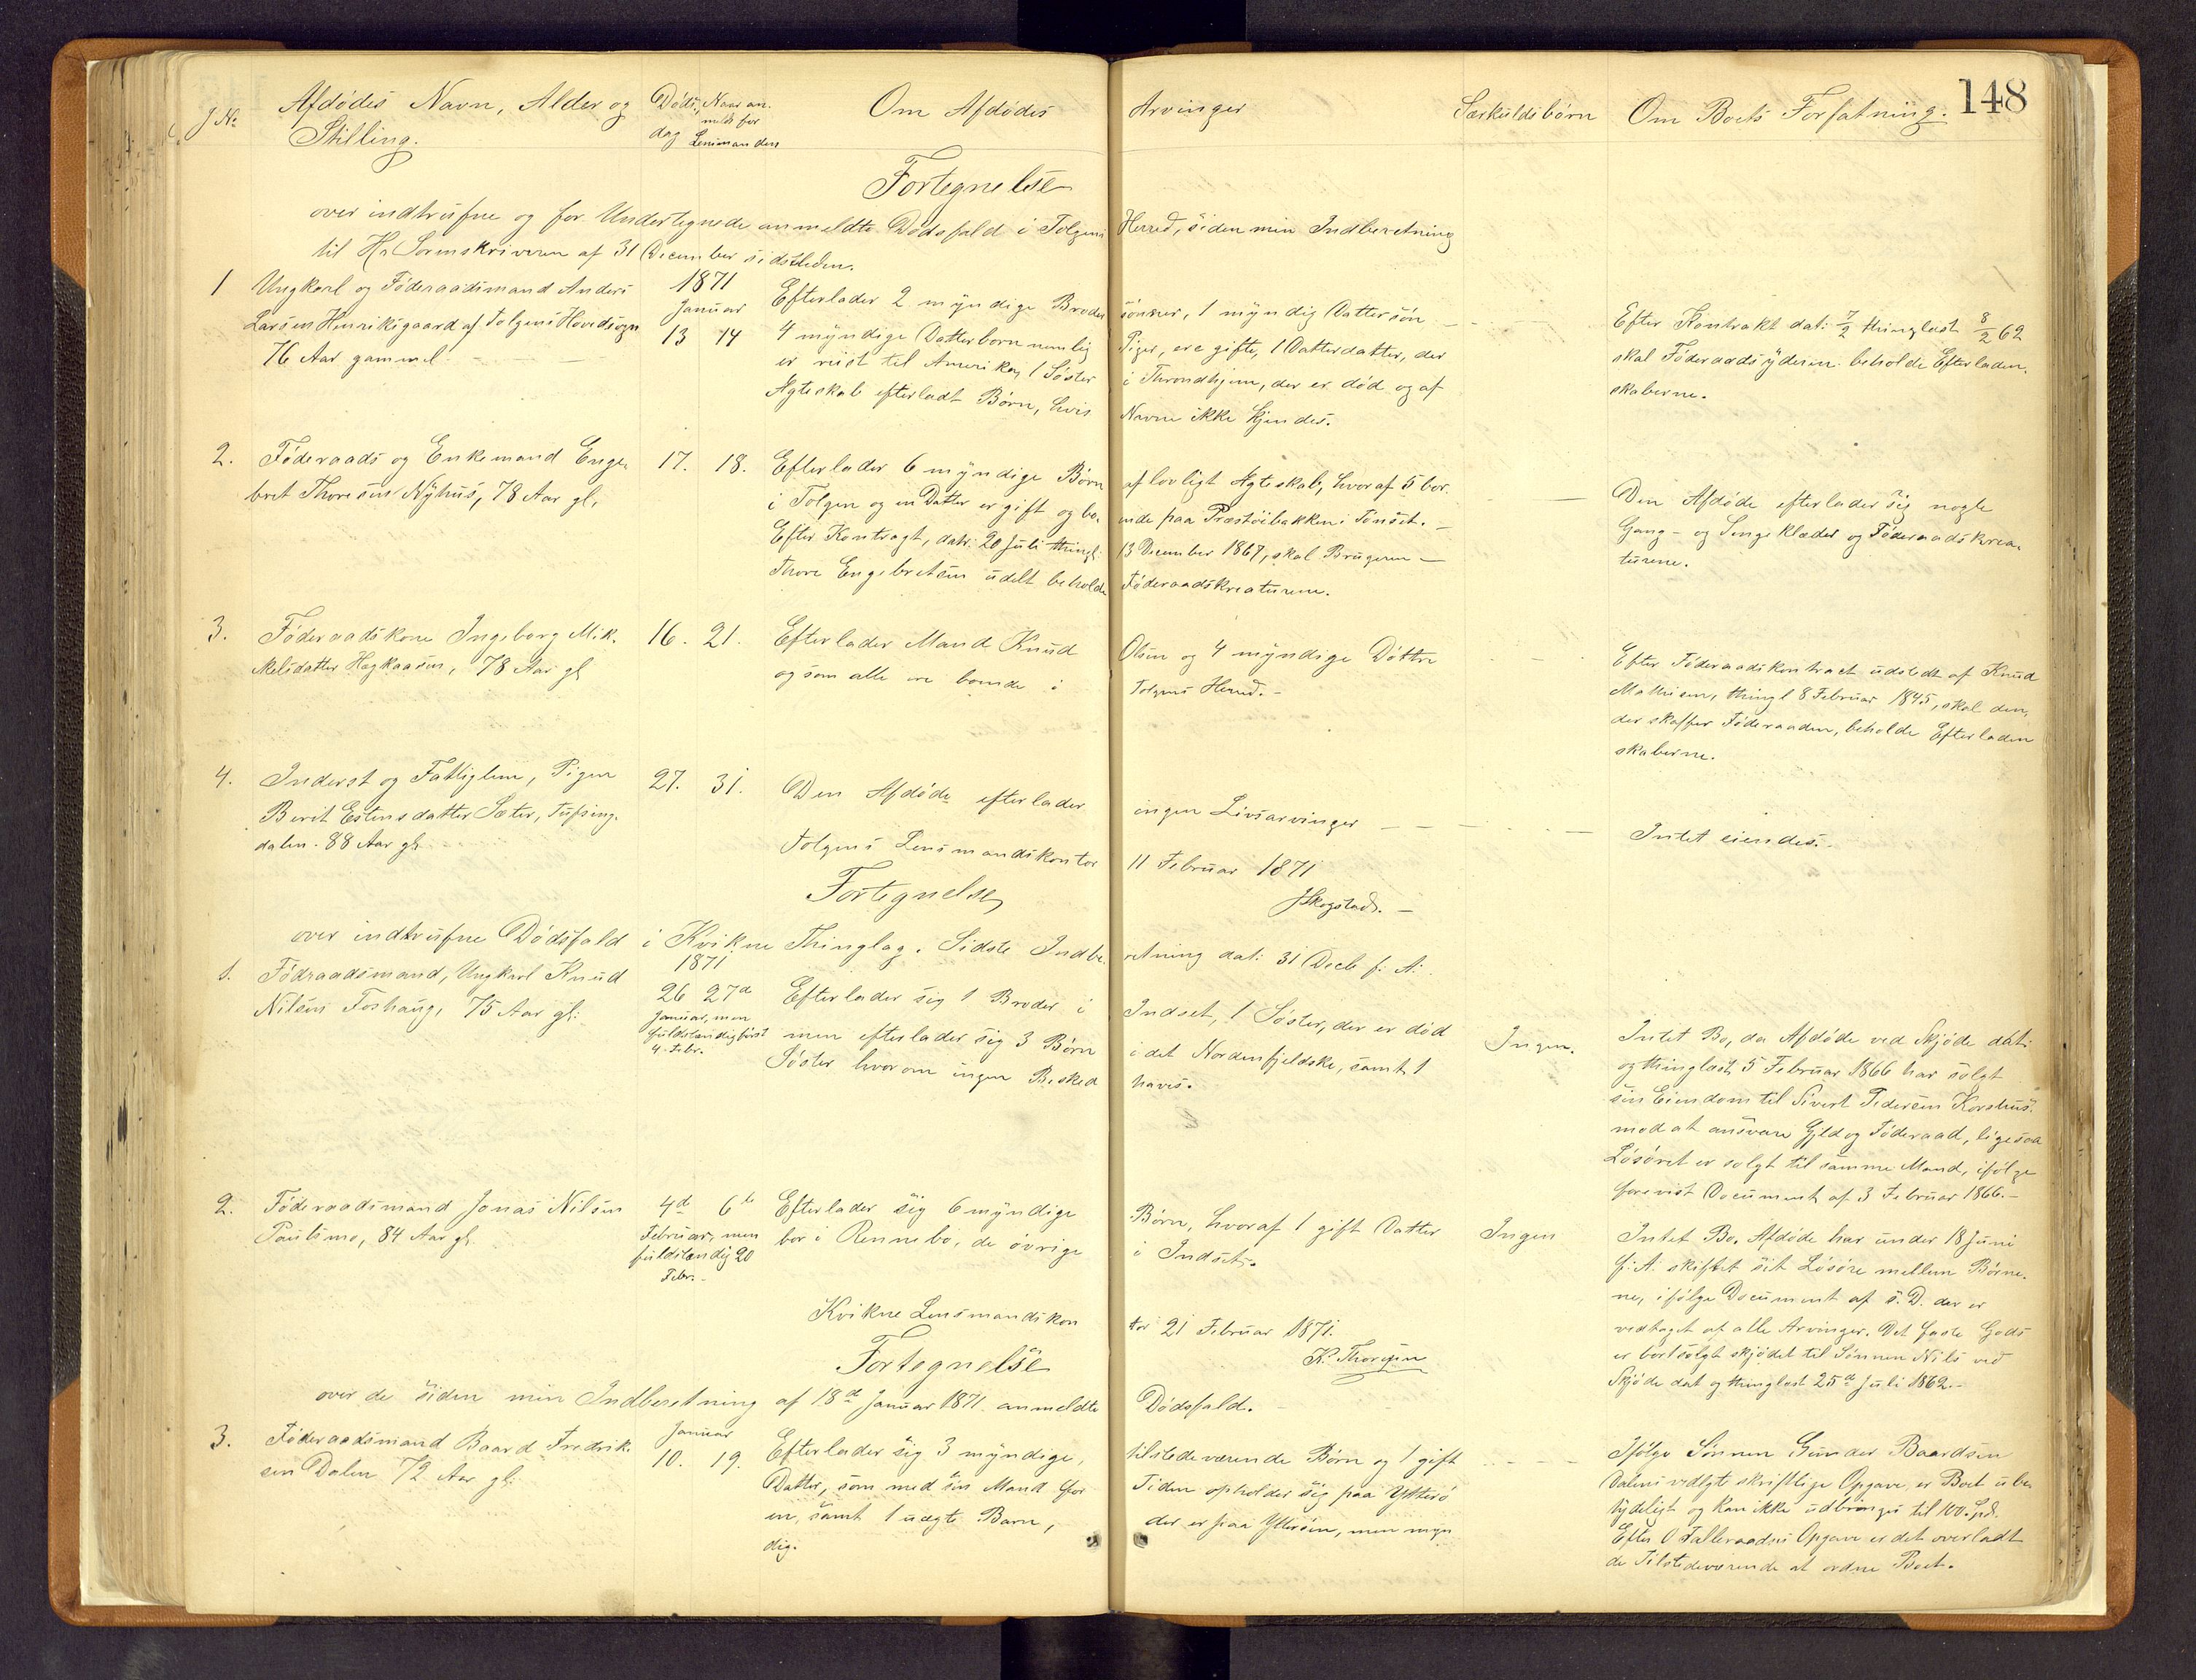 148
J No
Afdødes Navn, Alder og Stilling.
Døds dag
Naar an. meldt for Lensmanden
Om Afdødes Arvinger
Særkuldsbørn
Om Boets Forfatning.
Fortegnelse
over indtrufne og for Undertegnede anmeldte Dødsfald i Tolgens Herred, siden min Indberetning
til Hr Sorenskriveren af 31 December sidstleden.
1871
Januar
1 Ungkarl og Föderaadsmand Anders
Larsen Henriksgaard af Tolgens Hovedsogn
76 Aar gammel.
13 14
Efterlader 2 myndige Broder sönner, 1 myndig Dattersön
4 myndige Datterborn nemlig Piger, ere gifte, 1 Datterdatter, der
er reist til Amerika, 1 Söster i Throndhjem, der er död og af
Ægteskab efterladt Börn, hvis Navne ikke kjendes.
Efter Kontrakt dat: 7/2 thinglæst 8/2 62
skal Föderaadsyderen beholde Efterladen.
skaberne.
2. Föderaads og Enkemand Enge.
bret Thoresen Nyhus, 78 Aar gl.
17. 18.
Efterlader 6 myndige Börn af lovligt Ægteskab, hvoraf 5 bor.
i Tolgen og en Datter er gift og bo. ende paa Præstöibakken i Tönset.
Efter Kontragt, datr: 20 Juli thingl: 13 December 1867, skal Brugeren
Thore Engebretsen udelt beholde Föderaadskreaturene.
Den Afdøde efterlader sig nogle
Gang- og Sengeklæder og Föderaadskrea.
turene.
3. Föderaadskone Ingeborg Mik.
kelsdatter Hægkaasen, 78 Aar gl
16. 21.
Efterlader Mand Knud Olsen og 4 myndige Döttre
og som alle ere boende i Tolgens Herred.
Efter Föderaadskontract udstedt af Knud
Mathisen, thingl 8 Februar 1845, skal den,
der skaffer Föderaaden, beholde Efterladen
skaberne.
4. Inderst og Fattiglem, Pigen
Berit Estensdatter Sæter, Tufsing.
dalen. 88 Aar gl.
27. 31.
Den Afdøde efterlader ingen Livsarvinger
Intet eiendes.
Tolgens Lensmandskontor 11 Februar 1871
JSkogstad.
Fortegnelse
over indtrufne Dödsfald i Kvikne Thinglag. Sidste Indbe. retning dat: 31 Decb f: A:
1871
1. Födraadsmand, Ungkarl Knud
Nilsen Foshaug, 75 Aar gl:
26 27de
Januar, men
fuldstændig först
4. Febr.
Efterlader sig 1 Broder i Indset, 1 Söster, der er död
men efterlader sig 3 Börn i det Nordenfjeldske, samt 1
Söster hvorom ingen Besked haves.
Ingen.
Intet Bo, da Afdøde ved Skjöde dat:
og thinglæst 5 Februar 1866 har solgt
sin Eiendom til Sivert Pedersen Korshus.
mod at ansvare Gjeld og Föderaad, ligesaa
Lösöret er solgt til samme Mand, ifölge
forevist Document af 3 Februar 1866.
2. Föderaadsmand Jonas Nilsen
Paulsmo, 84 Aar gl.
4de 6te
Februar, men
fuldstændig 20
Febr.
Efterlader sig 6 myndige Börn, hvoraf 1 gift Datter
bor i Rennebo, de övrige i Indset.
Ingen
Intet Bo. Afdøde har under 18 Juni
f: A: skiftet sit Lösöre mellem Börne.
ne, ifölge Document af s. D. der er
vedtaget af alle Arvinger. Det faste Gods
er bortsolgt skjödet til Sönnen Nils ved
Skjöde dat og thinglæst 25de Juli 1862.
Kvikne Lensmandskon tor 21 Februar 1871.
K. Thoresen
Fortegnelse
over de siden min Indberetning af 18de Januar 1871 anmeldte Dödsfald.
Januar
3. Föderaadsmand Baard Fredrik.
sen Dalen 72 Aar gl:
10. 19.
Efterlader sig 3 myndige, tilstedeværende Börn og 1 gift
Datter, som med sin Mand for Tiden opholder sig paa Ytterö
en, samt 1 uægte Barn, der er paa Ytteröen, men myn
dig.
Ifölge Sönnen Gunder Baardsen
Dalens vedlagte skriftlige Opgave, er Boet ube
tydeligt og kan ikke udbringes til 100 Spd.
Efter O Falleraadses Opgave er det overladt
de Tilstedeværende at ordne Boet.